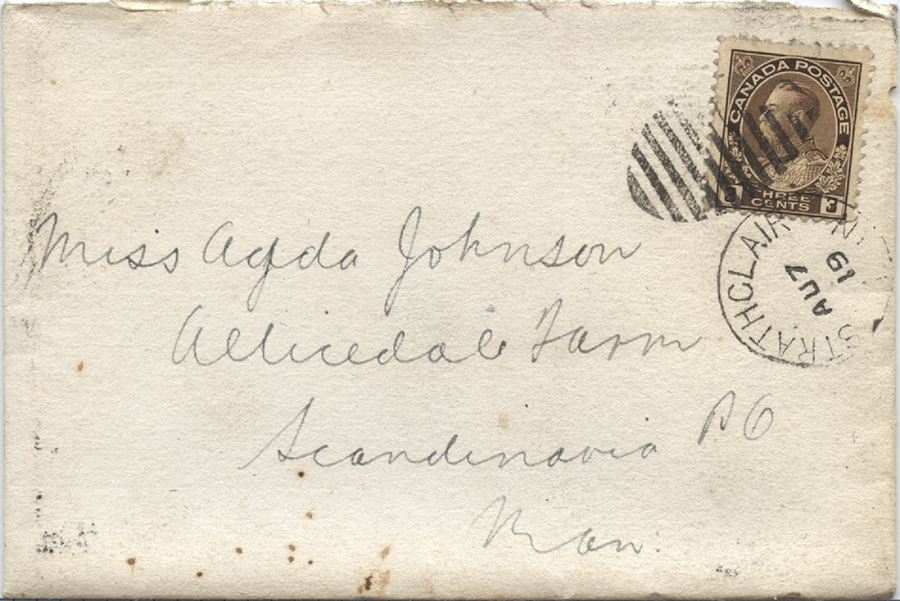 CANADA POSTAGE
3 THREE CENTS 3
STRATHCLAIR
AU 7
19
Miss Agda Johnson
Alticedale Farm
Scandinavia PO
Man.